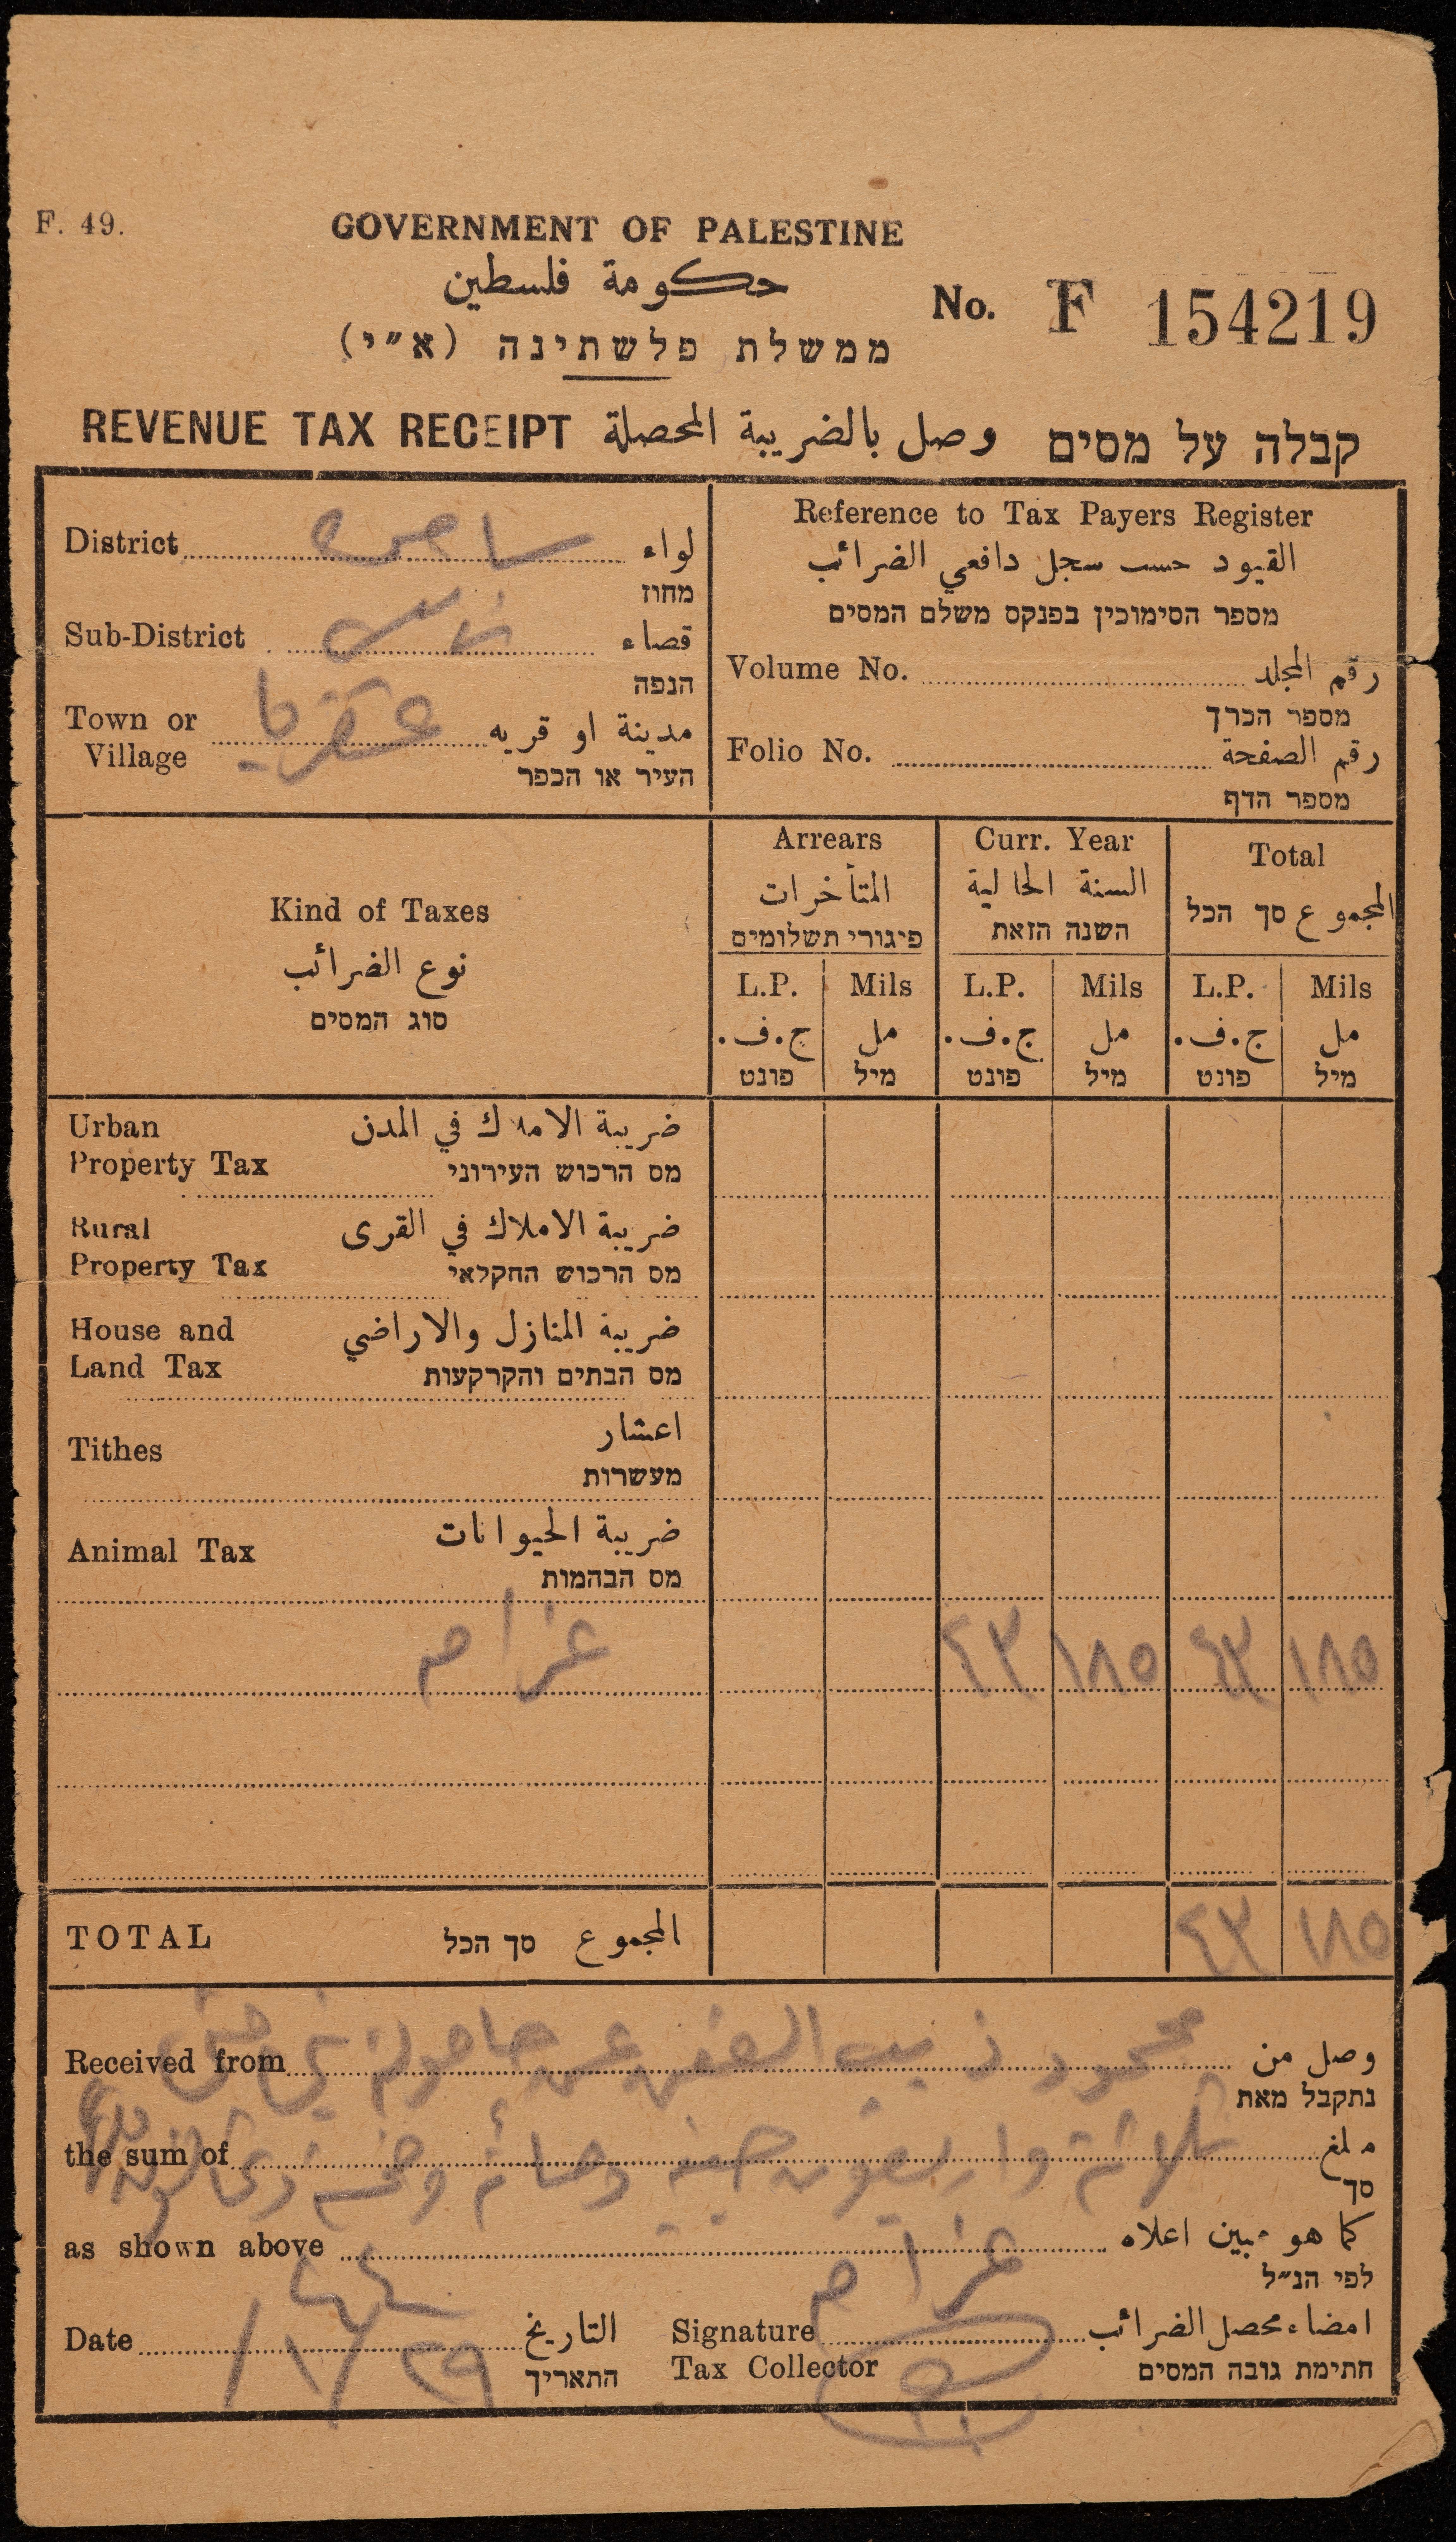 F. 49.
GOVERNMENT OF PALESTINE
حكومة فلسطين
ממשלת פלשתינה (א״י)
No. F 154219
REVENUE TAX RECEIPT وصل بالضريبة المحصلة קבלה על מסים
District لواء
מחוז
Sub-District قضاء
הנפה
Town or Village مدينة او قريه
העיר או הכפר
Reference to Tax Payers Register
القيود حسب سجل دافعي الضرائب
מספר הסימוכין בפנקס משלם המסים
Volume No. رقم المجلد
מספר הכרך
Folio No. رقم الصفحة
מספר הדף
Kind of Taxes
نوع الضرائب
סוג המסים
Arrears
المتأخرات
פיגורי תשלומים
Curr. Year
السنة الحالية
השנה הזאת
Total
المجموع סך הכל
L.P. Mils L.P. Mils L.P. Mils
ج.ف. مل ج.ف. مل ج.ف. مل
פונט מיל פונט מיל פונט מיל
Urban Property Tax ضريبة الاملاك في المدن
מס הרכוש העירוני
Rural Property Tax ضريبة الاملاك في القرى
מס הרכוש החקלאי
House and Land Tax ضريبة المنازل والاراضي
מס הבתים והקרקעות
Tithes اعشار
מעשרות
Animal Tax ضريبة الحيوانات
מס הבהמות
غرام ٤٣ ١٨٥ ٤٣ ١٨٥
TOTAL المجموع סך הכל ٤٣ ١٨٥
Received from محمود وصل من
נתקבל מאת
the sum of ثلاثة واربعون جنيه مبلغ
סך
as shown above كما هو مبين اعلاه
לפי הנ״ל
غرام
Date التاريخ
התאריך
Signature Tax Collector امضاء محصل الضرائب
חתימת גובה המסים